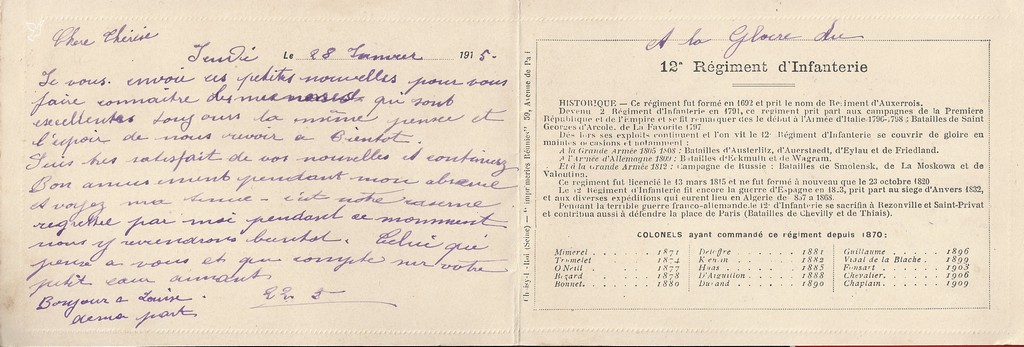 Chere Thérèse
Jeudi Le 28 Janvier 1915-
Je vous envoie ces petites nouvelles pour vous
faire connaitre des mes qui sont
excellentes toujours la même pensee et
l'espoir de vous revoir a Bientot.
Suis tres satisfait de vos nouvelles et continuez
Bon amusement pendant mon absence
voyez ma tenue - c'est notre caserne
regrettée par moi pendant se momment
nous y reviendrons bientot. Celui qui
pense a vous et qui compte sur votre
petit cœur aimant
Bonjour a Louise
de ma part
Choisy-l -Roi (Seine) - Imprimeries Réunies 59, Avenue de Pa
A la Gloire du
12e Régiment d'Infanterie
HISTORIQUE — Ce régiment fut formé en 1692 et prit le nom de Regiment d'Auxerrois.
Devenu 2 Régiment d'Infanterie en 1791, ce regiment prit part aux campagnes de la Première
République et de l'Empire et se fit remarquer dès le début à l'Armée d'Italie 1796-1798 ; Batailles de Saint
Georges d'Arcole, de La Favorite 1797
Dès lors ses exploits continuent et l'on vit le 12e Régiment d'Infanterie se couvrir de gloire en
maintes occasions et notamment :
A la Grande Armée 1805 1808 : Batailles d'Austerlitz, d'Auerstaedt, d'Eylau et de Friedland.
A l'Armée d'Allemagne 1809 : Batailles d'Eckmulh et de Wagram.
Et à la Grande Armée 1812 : Campagne de Russie : Batailles de Smolensk, de La Moskowa et de
Valoutina.
Ce regiment fut licencié le 13 mars 1815 et ne fut formé à nouveau que le 23 octobre 1820
Le 12 Régiment d'Infanterie fit encore la guerre d'Espagne en 1823, prit part au siège d'Anvers 1832,
et aux diverses expéditions qui eurent lieu en Algérie de 1857 a 1868.
Pendant la terrible guerre franco-allemande le 12e d'Infanterie se sacrifia à Rezonville et Saint-Privat
et contribua aussi à défendre la place de Paris (Batailles de Chevilly et de Thiais).
COLONELS ayant commandé ce régiment depuis 1870 :
Mimerel . . . . . 1871 Deleffre . . . . . 1881 Guillaume . . . . . 1896
Tramelet . . . . . 1874 . . . . . 1882 Vidal de la Blache . . 1899
O'Neill . . . . . 1877 Haas . . . . . 1885 Fonsart . . . . . 1903
Bizard . . . . . 1878 D'Aiguillon . . . . 1888 Chevalier . . . . . 1906
Bonnet . . . . . 1880 Durand . . . . . 1890 Chaplain . . . . . 1909